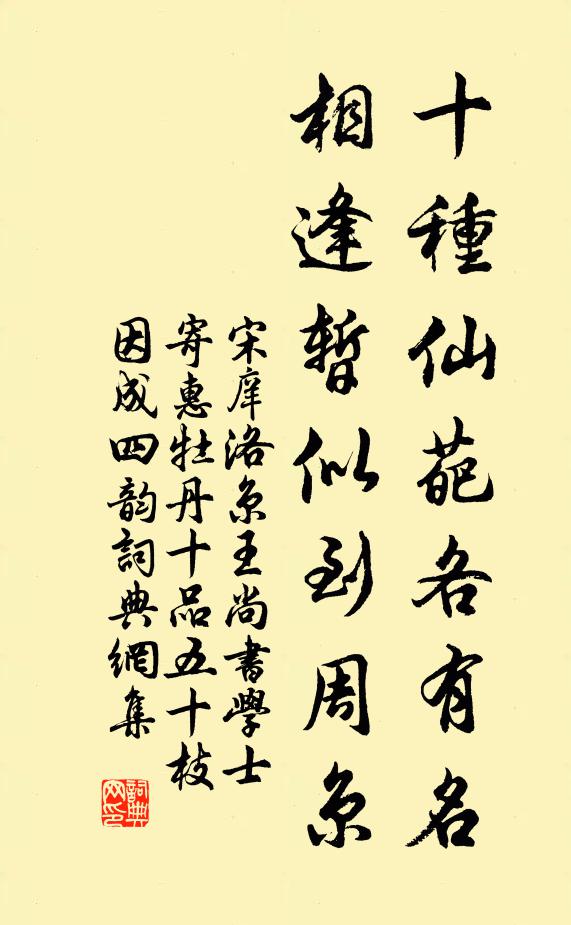 十種仙葩各有名
相逢暫似到周京
宋庠洛京王尚書學士
寄惠牡丹十品五十枝
因成四韵詞典網集
詞典网印